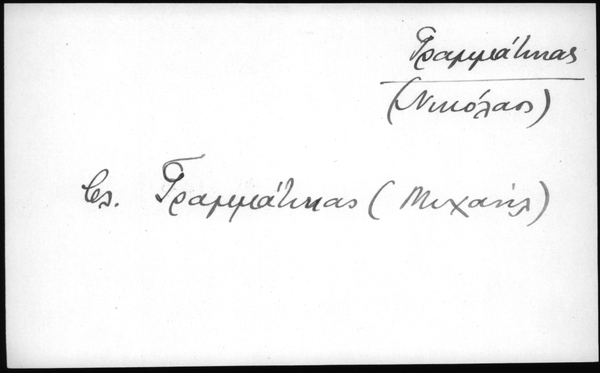 Γραμμάτικας
(Νικόλαος)
Βλ. Γραμμάτικας (Μιχαήλ)